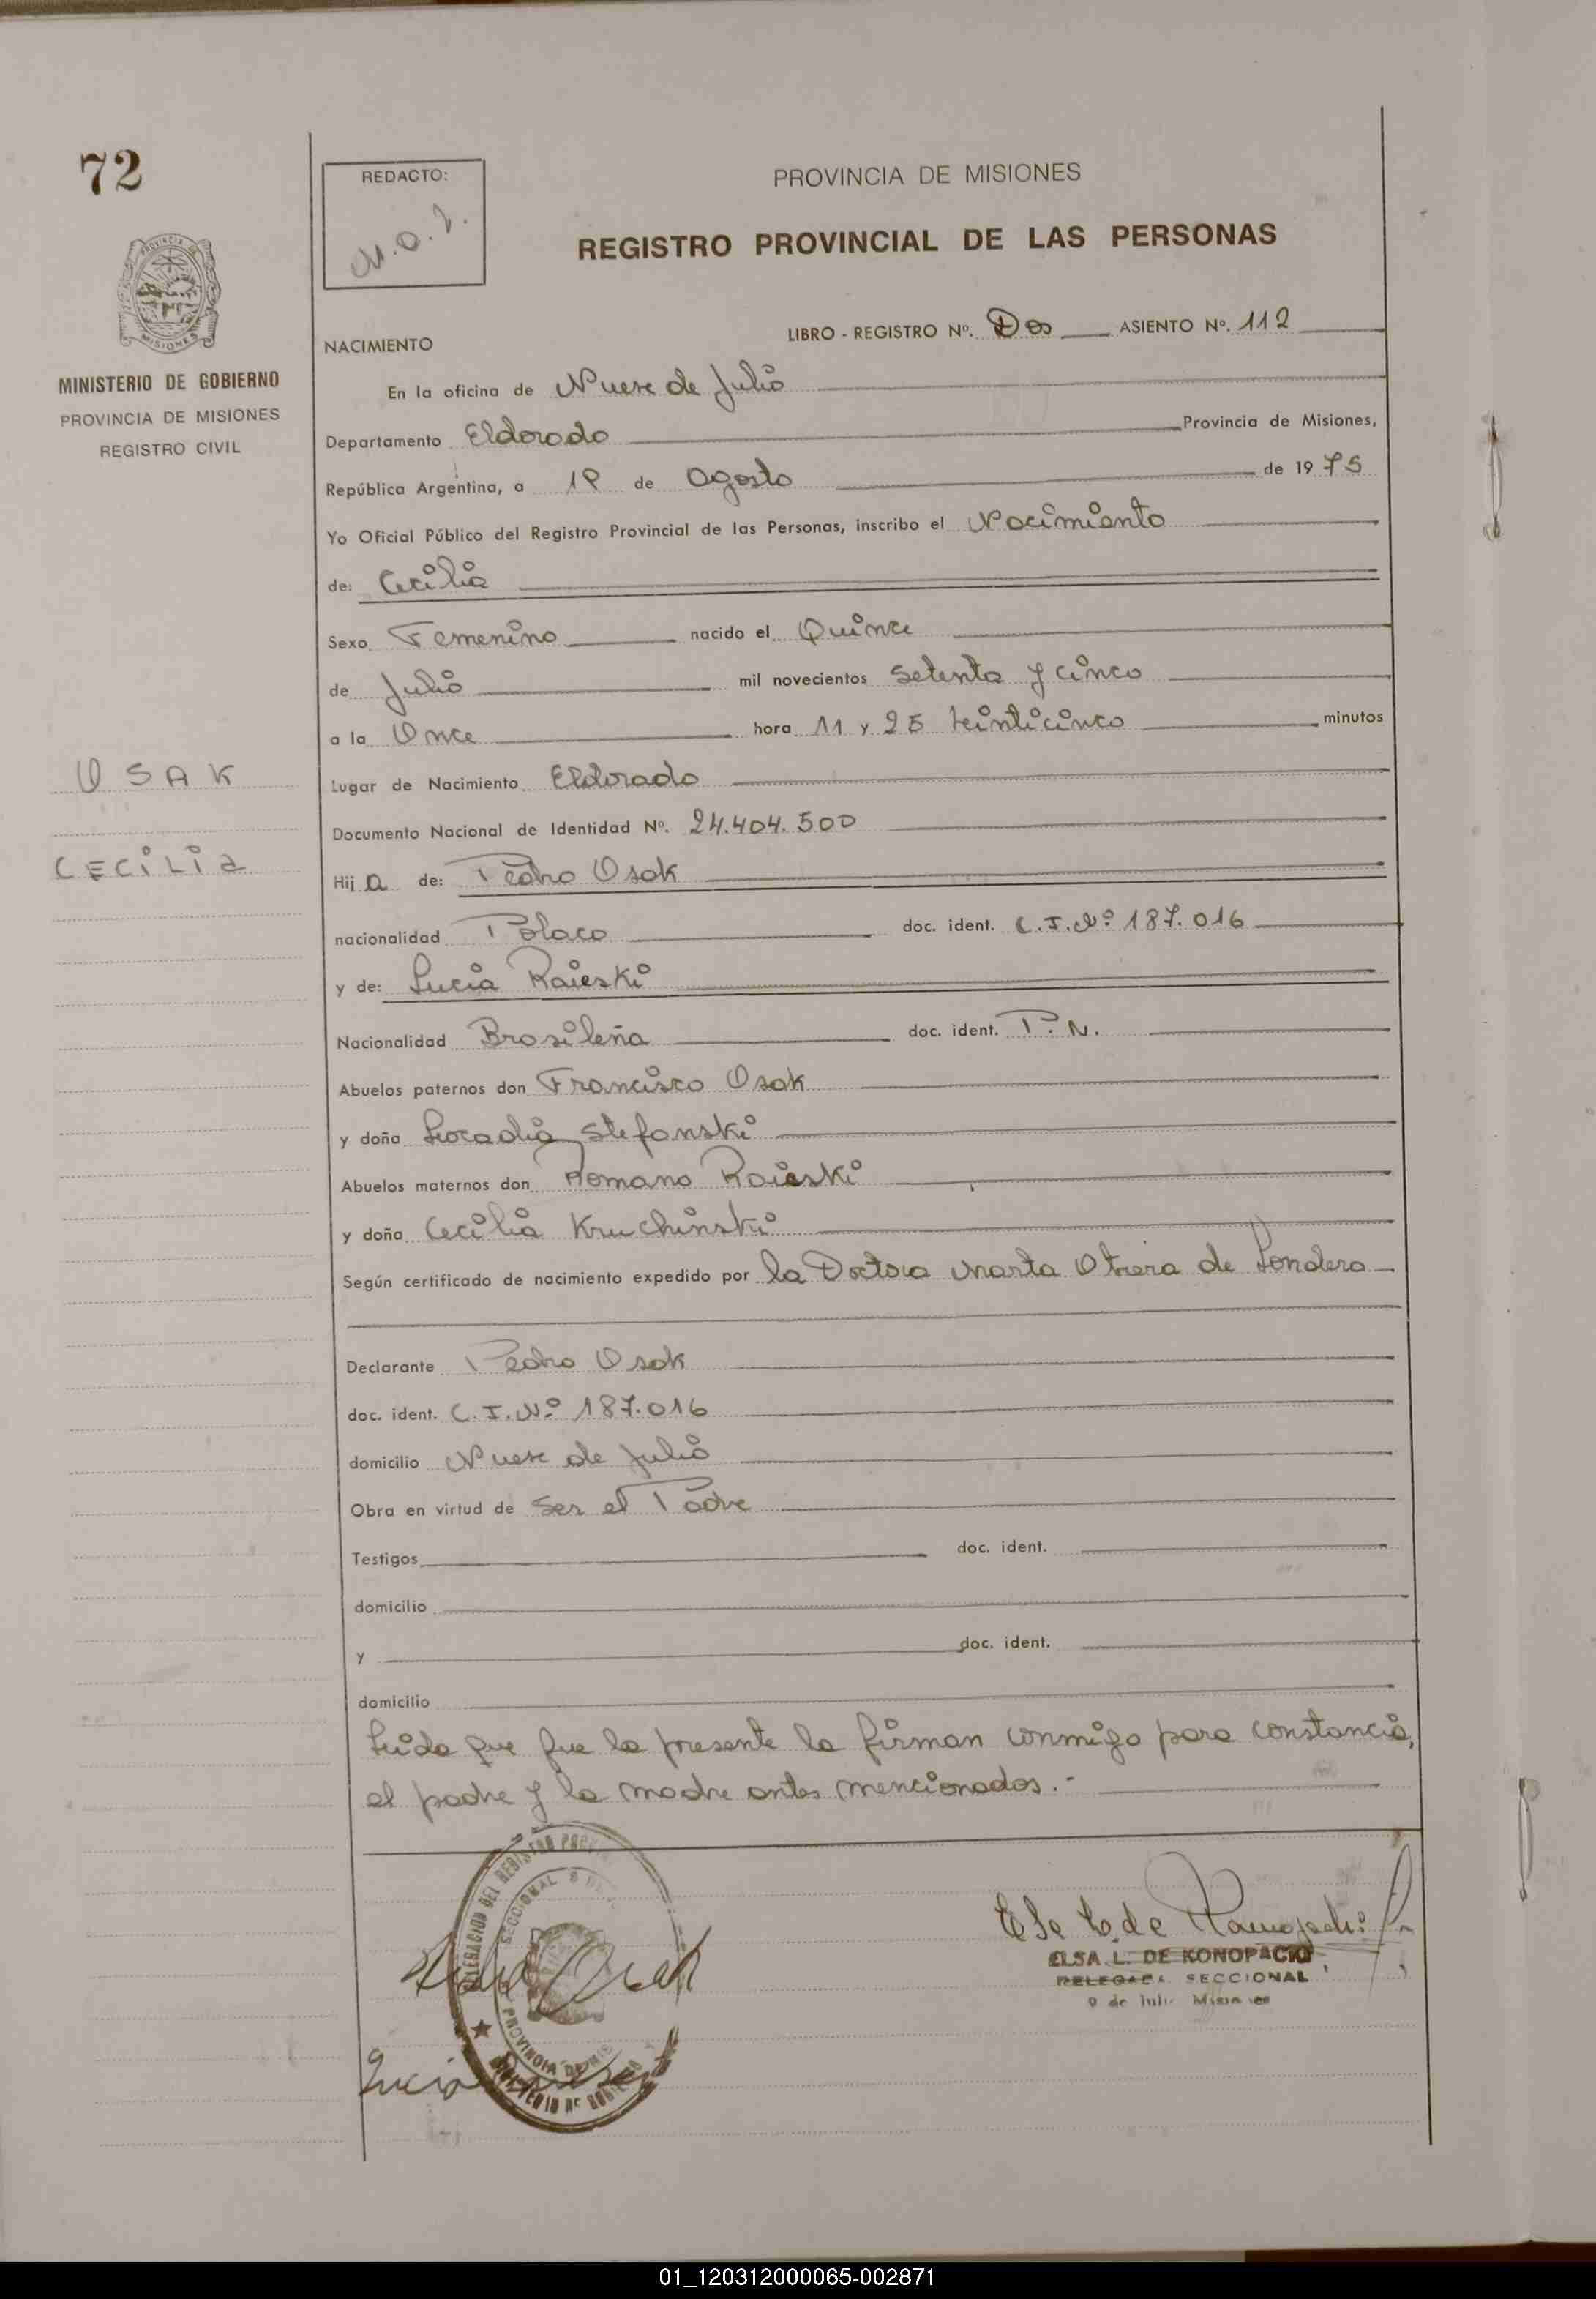 72
REDACTO:
PROVINCIA DE MISIONES
REGISTRO PROVINCIAL DE LAS PERSONAS
MINISTERIO DE GOBIERNO
PROVINCIA DE MISIONES
REGISTRO CIVIL
NACIMIENTO
LIBRO - REGISTRO Nº. Dos ASIENTO Nº. 112
En la oficina de Nueve de Julio
Departamento Eldorado Provincia de Misiones,
República Argentina, a 1º de Agosto de 1975
Yo Oficial Público del Registro Provincial de las Personas, inscribo el Nacimiento
de: Cecilia
Sexo Femenino nacido el Quince
de Julio mil novecientos Setenta y cinco
a la Once hora 11 y 25 Veinticinco minutos
OSAK
Lugar de Nacimiento Eldorado
Documento Nacional de Identidad Nº. 24.404.500
CECiLia
Hij a de: Pedro Osak
nacionalidad Polaco doc. ident. C.I.Nº 187.016
y de: Lucia Raieski
Nacionalidad Brasileña doc. ident. P.N.
Abuelos paternos don Francisco Osak
y doña Leocadia Stefanski
Abuelos maternos don Romano Raieski
y doña Cecilia Kruchinski
Según certificado de nacimiento expedido por la Doctora Marta de Londero
Declarante Pedro Osak
doc. ident. C.I.Nº 187.016
domicilio Nueve de Julio
Obra en virtud de Ser el Padre
Testigos doc. ident.
domicilio
y doc. ident.
domicilio
Leida que fue la presente la firman conmigo para constancia,
el padre y la madre antes mencionados.-
DELEGACION DEL REGISTRO
SECCIONAL 9 DE
PROVINCIA DE MIS
MINISTERIO DE GOBIERNO
Osak
Lucia
ELSA L. DE KONOPACKI
DELEGADA SECCIONAL
9 de Julio Misiones
01_120312000065-002871